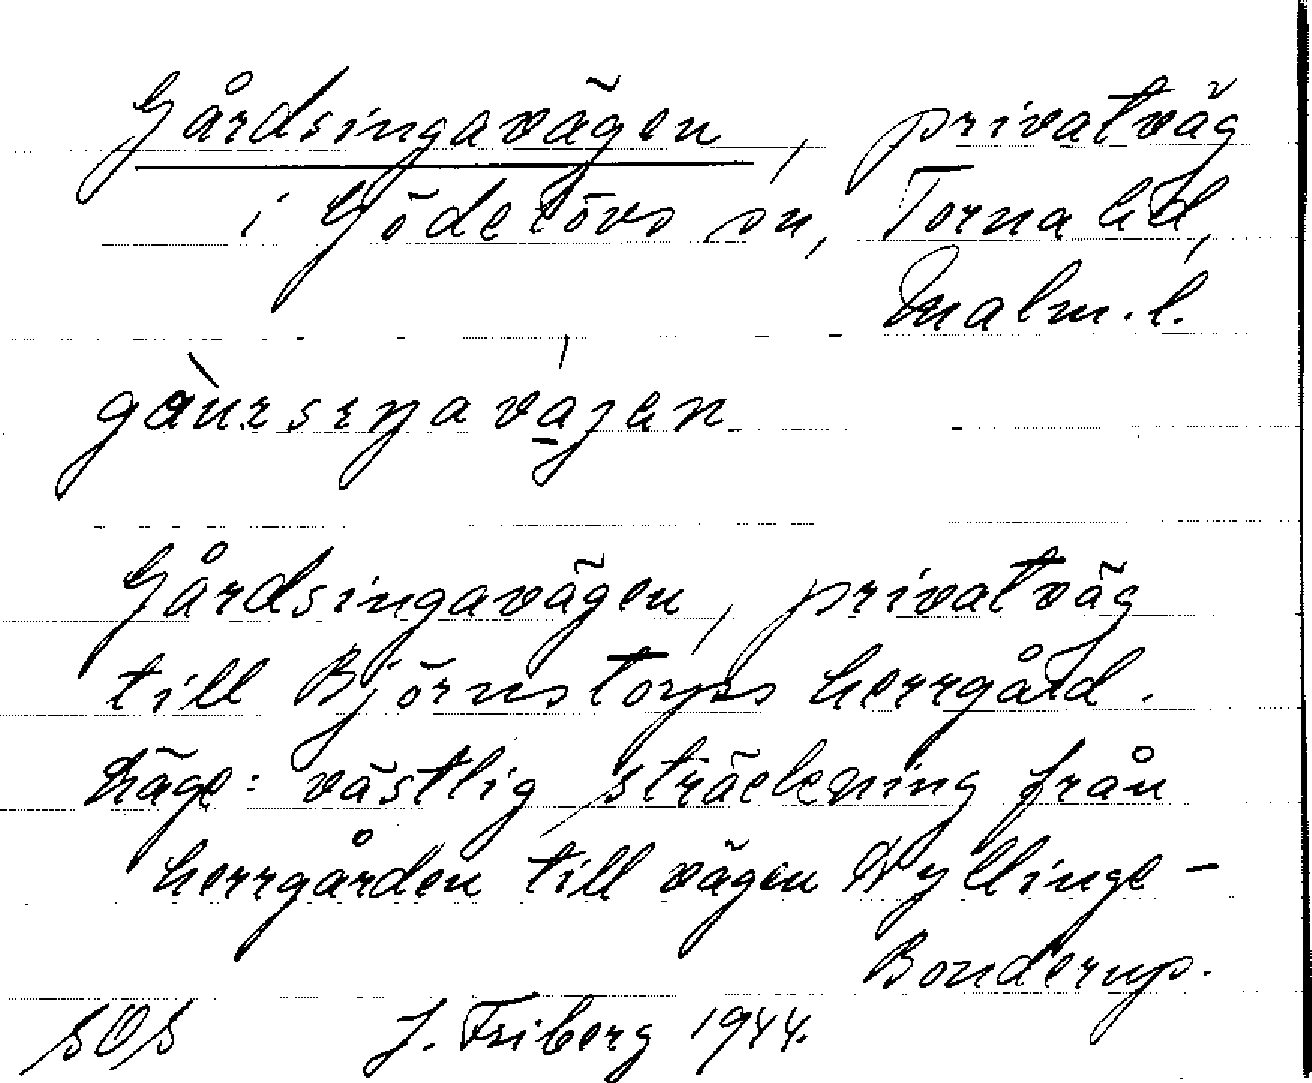 Gårdsingavägen, privatväg
i Gödelövs sn, Torna hd,
Malm. l.
gàuɛsɛŋavạʒen
Gårdsingavägen, privatväg
till Björnstorps herrgård.
Läge: västlig sträckning från
herrgården till vägen Kyllinge-
Bonderup.
SOS J. Friberg 1944.